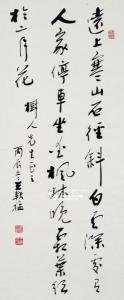 遠上寒山石徑斜白雲深處有
人家停車坐愛楓林晚霜葉紅
於二月花 樹人先生正之
丙辰